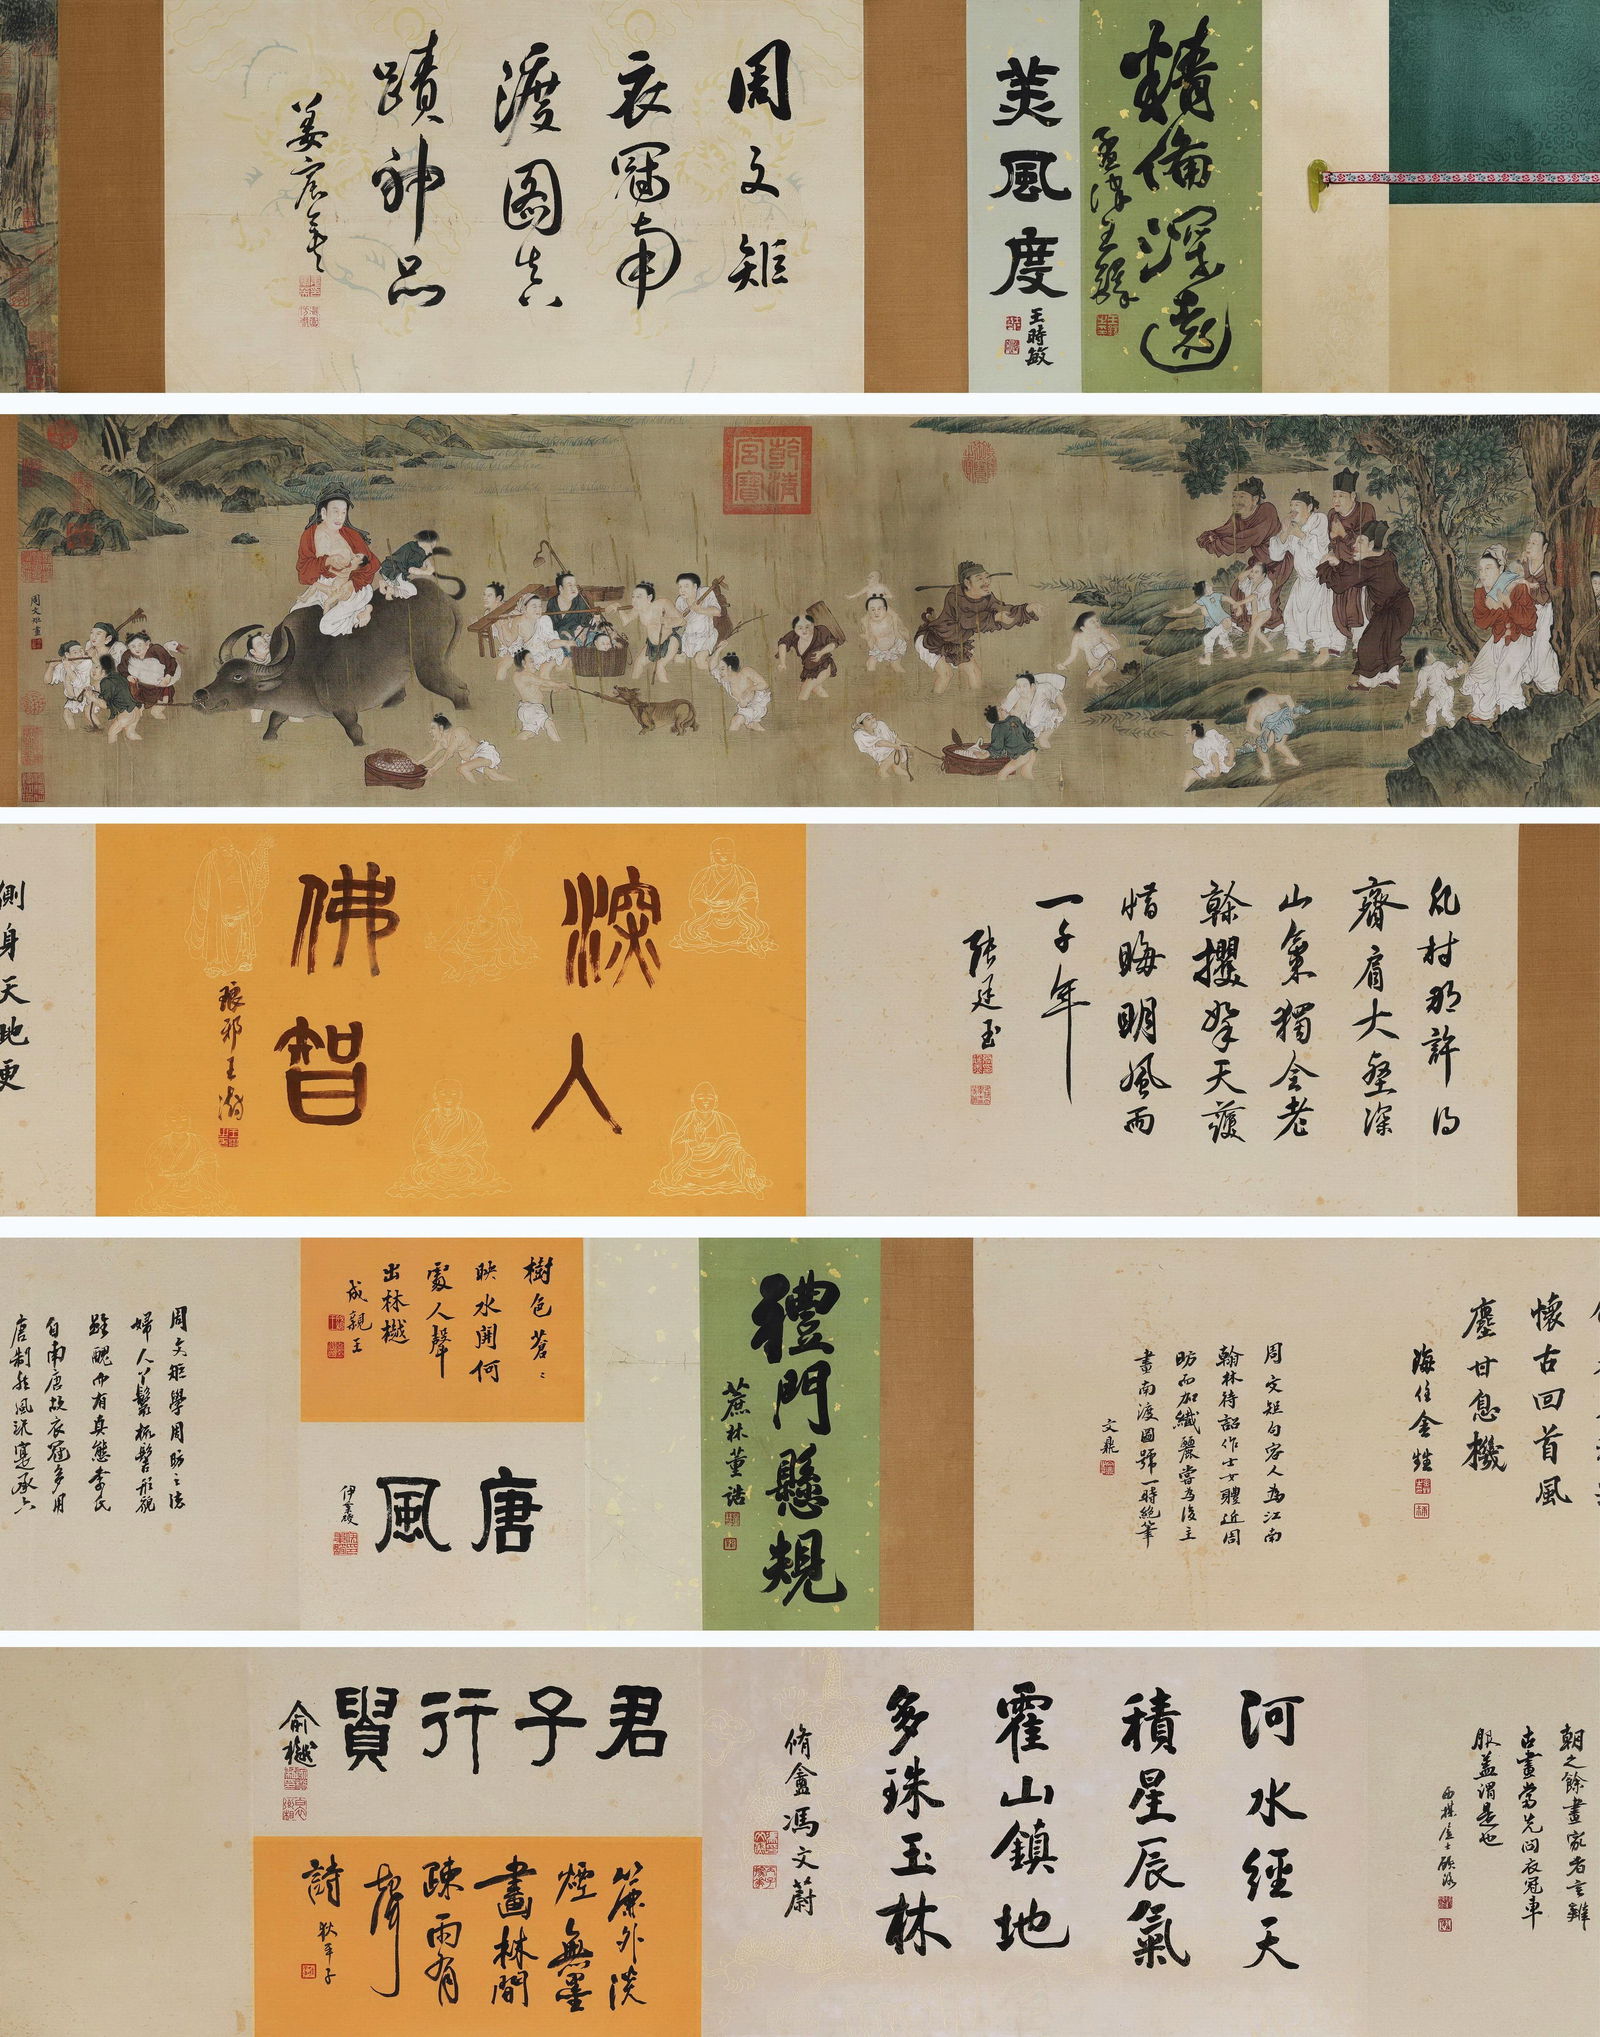 精備深遠
孟津王鐸
美風度
王時敏
周文矩
衣冠南
渡圖真
蹟神品
姜宸英
乾清
宮寶
周文矩畫
凡材那許得
齊肩大壑深
山氣獨全老
榦攫拏天護
惜晦明風雨
一千年
張廷玉
深人
佛智
琅邪王澍
側身天地更
懷古回首風
塵甘息機
海住金甡
周文矩句容人為江南
翰林待詔作士女體近周
昉而加纖麗嘗為後主
畫南渡圖號一時絕筆
文鼎
禮門懸規
蔗林董誥
樹色蒼〻
映水開何
處人聲
出林樾
成親王
唐風
伊秉綬
周文矩學周昉之法
婦人丫鬟梳髻形貌
雖醜而有真態李氏
自南唐故衣冠多用
唐制然風流寔承六
朝之餘畫家者言雖
古畫當先問衣冠車
服蓋謂是也
河水經天
積星辰氣
霍山鎮地
多珠玉林
脩盦馮文蔚
君子行賢
俞樾
簾外淡
煙無墨
畫林間
疎雨有
聲
詩
狄平子